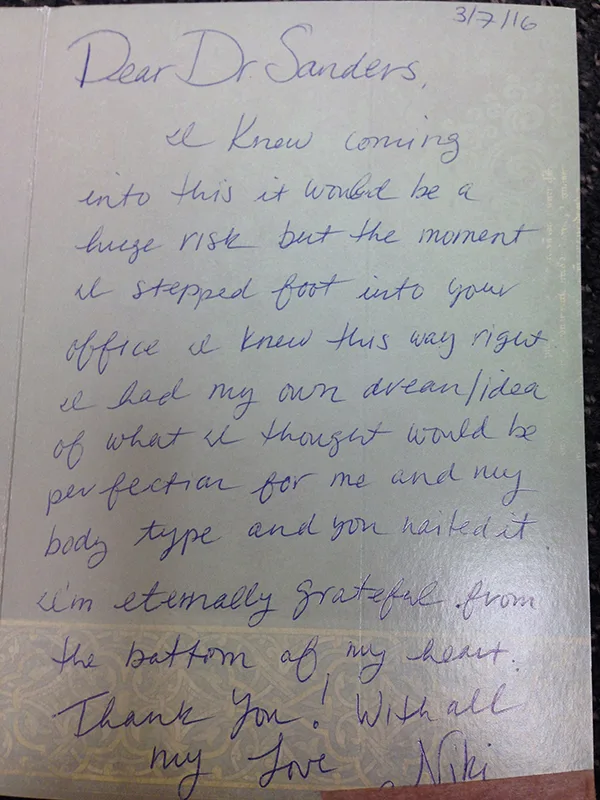 3/7/16
Dear Dr. Sanders,
I Knew coming
into this it would be a
huge risk but the moment
I stepped foot into your
office I knew this way right
I had my own dream/idea
of what I thought would be
perfection for me and my
body type and you nailed it.
I'm eternally grateful from
the bottom of my heart.
Thank You! With all
my Love Niki